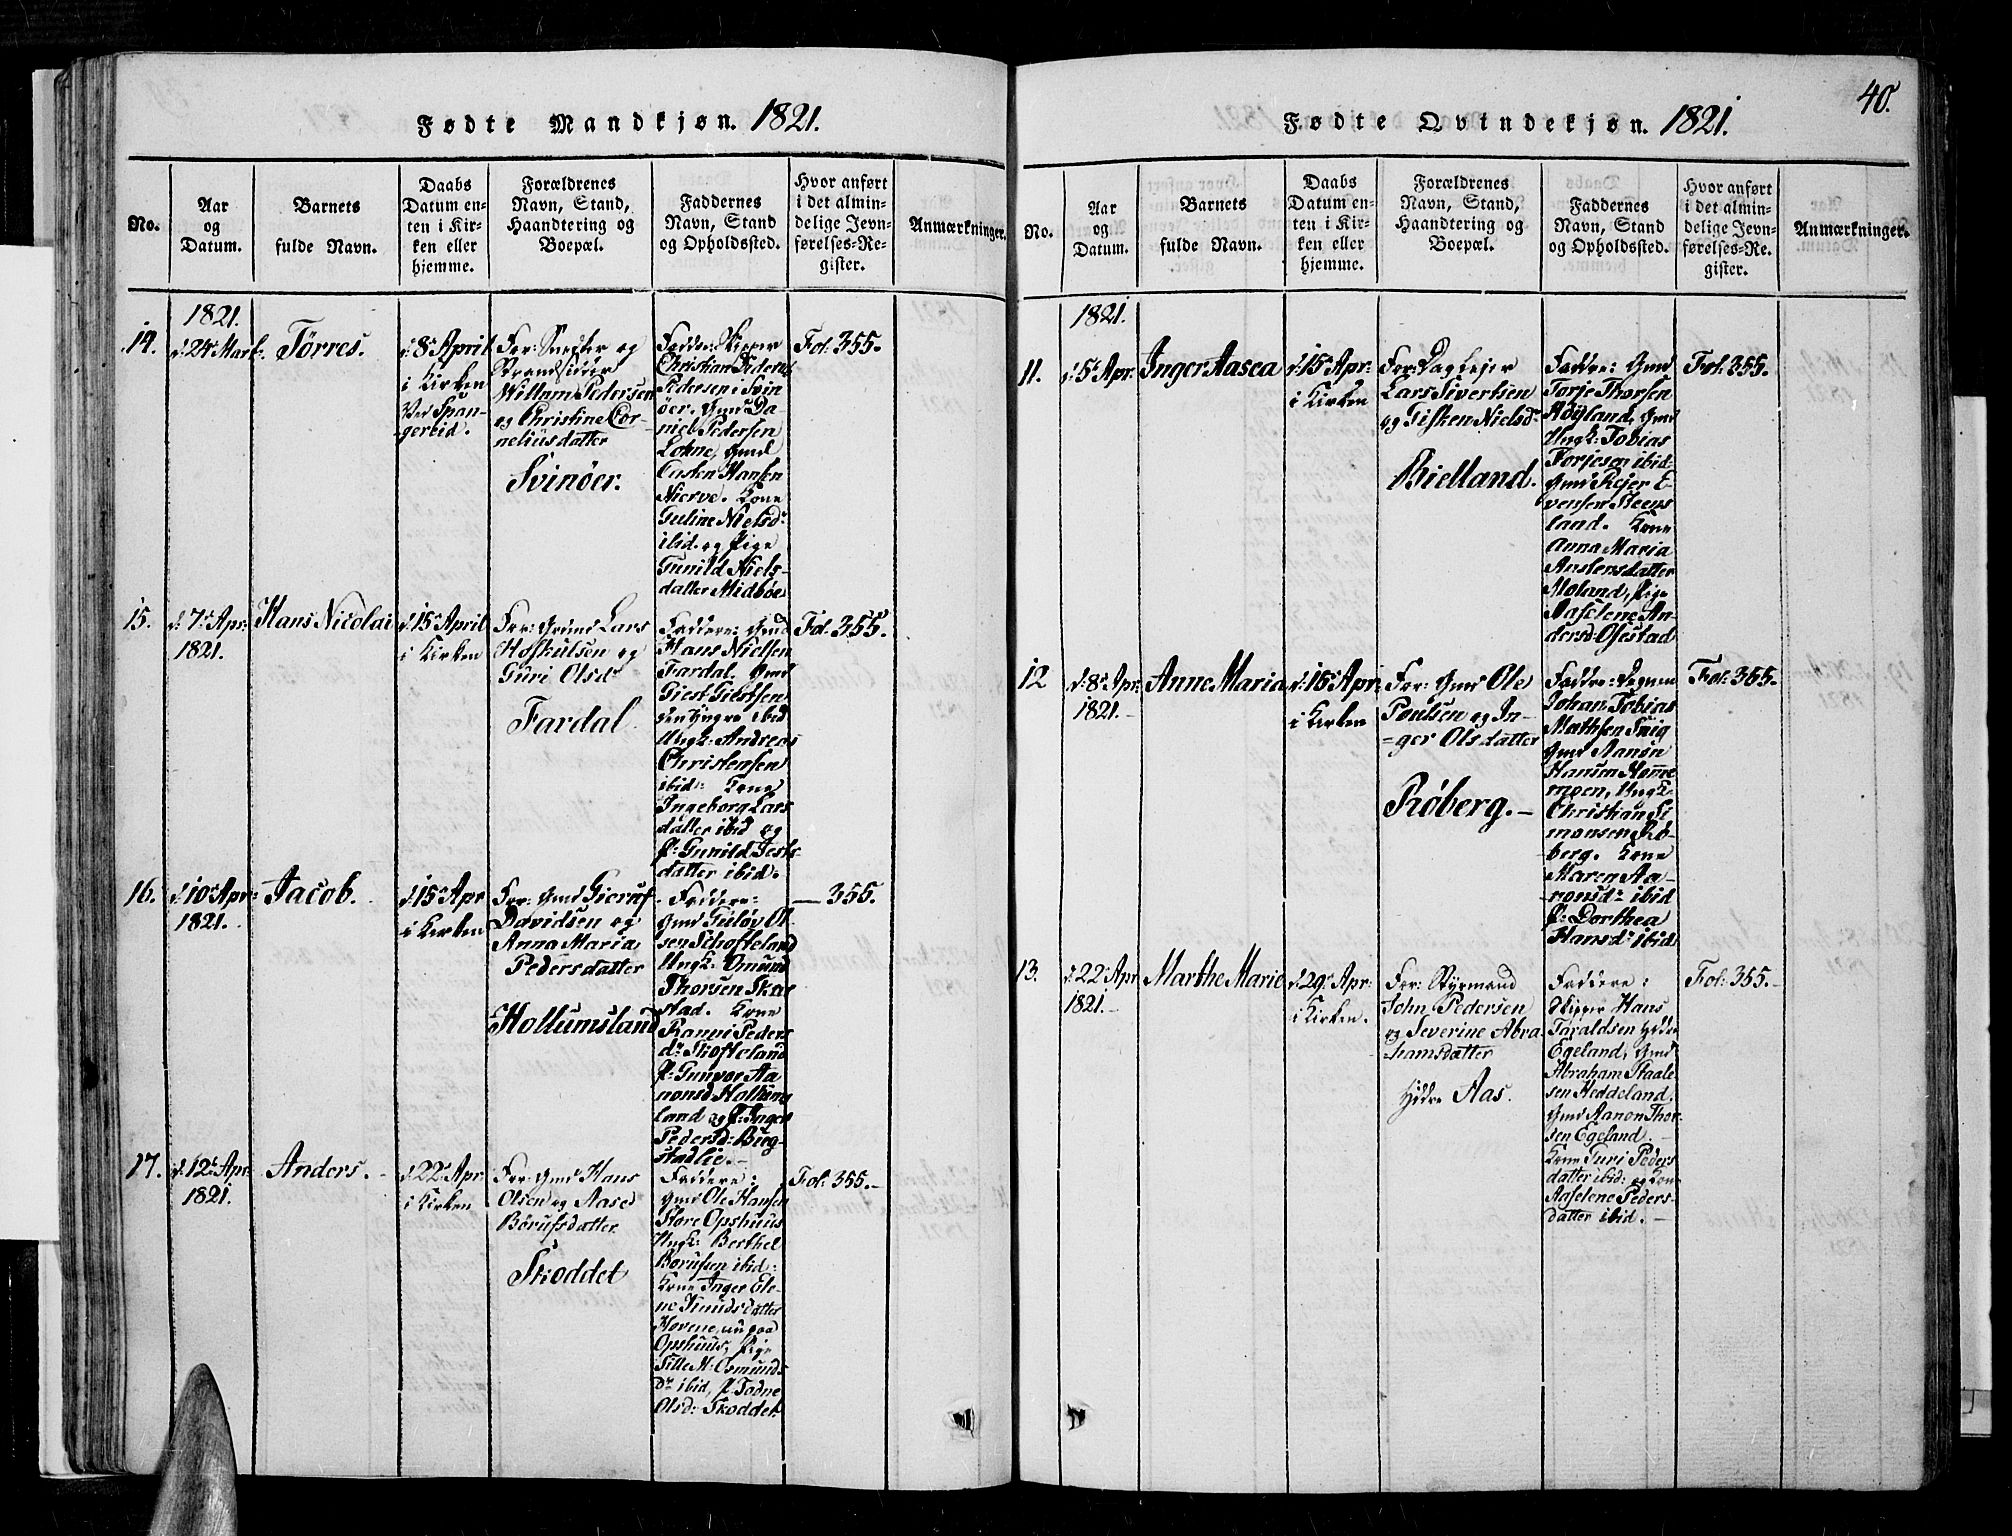 Fødte Mandkjøn. 1821.
No.
Aar
og
Datum.
Barnets
fulde Navn.
Daabs
Datum en-
ten i Kir-
ken eller
hjemme.
Forældrenes
Navn, Stand,
Haandtering og
Boepæl.
Faddernes
Navn, Stand
og Opholdssted.
Hvor anført
i det almin-
delige Jevn-
førelses-Re-
gister.
Anmærkninger.
14.
1821.
d: 24de Marts.
Tørres.
d: 8de April
i Kirken
Ved Span-
gereid.
For:
og
Strandsidder
Willum Pedersen
og Christine Cor-
neliusdatter
Svinöer.
Fadder: Skipper
Christian
Pedersen i Svin
öer. Gmd Da-
niel Pedersen
Lohne, Gmd
Hansen
Kone
Nielsd:
ibid. og Pige
Gunild Niels-
datter Midböe
Fol: 355.
15.
d: 7de Apr:
1821.
Hans Nicolai
d: 15de April
i Kirken
For: Gmd Lars
og
Guri Olsd:
Fardal.
Faddere: Gmd
Hans Nielsen
Fardal. Gmd
den Yngre ibid
Ungk: Andreas
Christensen
ibid: Kone
Ingeborg Lars
datter ibid og
P: Gunild
datter ibid.
Fol: 355.
16.
d: 10de Apr:
1821.
Jacob.
d: 15de Apr
i Kirken
For: Gmd
Davidsen og
Anna Maria
Pedersdatter
Hollumsland
Faddere:
Gmd Ol-
sen Schofteland
Ungk: Omund
Thorsen
stad. Kone
Ranni Peders
d: Skofteland
P: Gunvor Aa
nonsd Hollums
land og P: Inger
Pedersd: Burg-
stadlie.
— 355.
17.
d: 12te Apr
1821.
Anders.
d: 22de Apr:
i Kirken
For: Gmd Hans
Olsen og Aase
Börufsdatter
Skoddet
Faddere:
Gmd Ole Hansen
Store Opshuus
Ungk: Berthel
Börufsen ibid:
Kone Inger Ele-
ne Knudsdatter
Hovene, nu paa
Opshuus, Pige
Sille M: Osmunds
dr ibid, P. Todne
Olsd: Skoddet.
Fol: 355.
40.
Fødte Qvindekjøn. 1821.
No.
Aar
og
Datum.
Barnets
fulde Navn.
Daabs
Datum en-
ten i Kir-
ken eller
hjemme.
Forældrenes
Navn, Stand,
Haandtering og
Boepæl.
Faddernes
Navn, Stand
og Opholdssted.
Hvor anført
i det almin-
delige Jevn-
førelses-Re-
gister.
Anmærkninger.
11.
1821.
d: 5te Apr.
Inger Aasea
d: 15de Apr:
i Kirken
For: Daglejer
Lars Sivertsen
og Gisken Nielsd:
Bielland.
Faddere: Gmd
Torje Thorsen
Höyland, Gmd
Ungk: Tobias
Torjesen ibid.
Gmd Rejer E-
vensen Steens
land. Kone
Anna Maria
Anstensdatter
Moland, Pige
Aaselene An-
dersd: Ofestad
Fol: 355.
12
d: 8de Apr:
1821.
Anne Maria
d: 15de Apr:
i Kirken
For: Gmd Ole
Poulsen og In-
ger Olsdatter
Röberg.
Faddere: Degnen
Johan Tobias
Mathsen Svig
Gmd Aanon
Hansen Homme
moen, Ungk:
Christian Si
monsen Rö-
berg. Kone
Maren Aa-
nonsd: ibid
P: Dorthea
Hansd: ibid:
Fol: 355.
13.
d: 22de Apr
1821.
Marthe Marie
d: 29de Apr:
i Kirken.
For: Styrmand
John Pedersen
og Severine Abra
hamsdatter
Aas.
Faddere:
Skipper Hans
Taraldsen
Egeland, Gmd
Abraham Staale
sen Heddeland.
Gmd Aanon Thor
sen Egeland.
Kone Guri Peders
datter ibid: og Kone
Aaselene Peders
datter ibid.
Fol: 355.